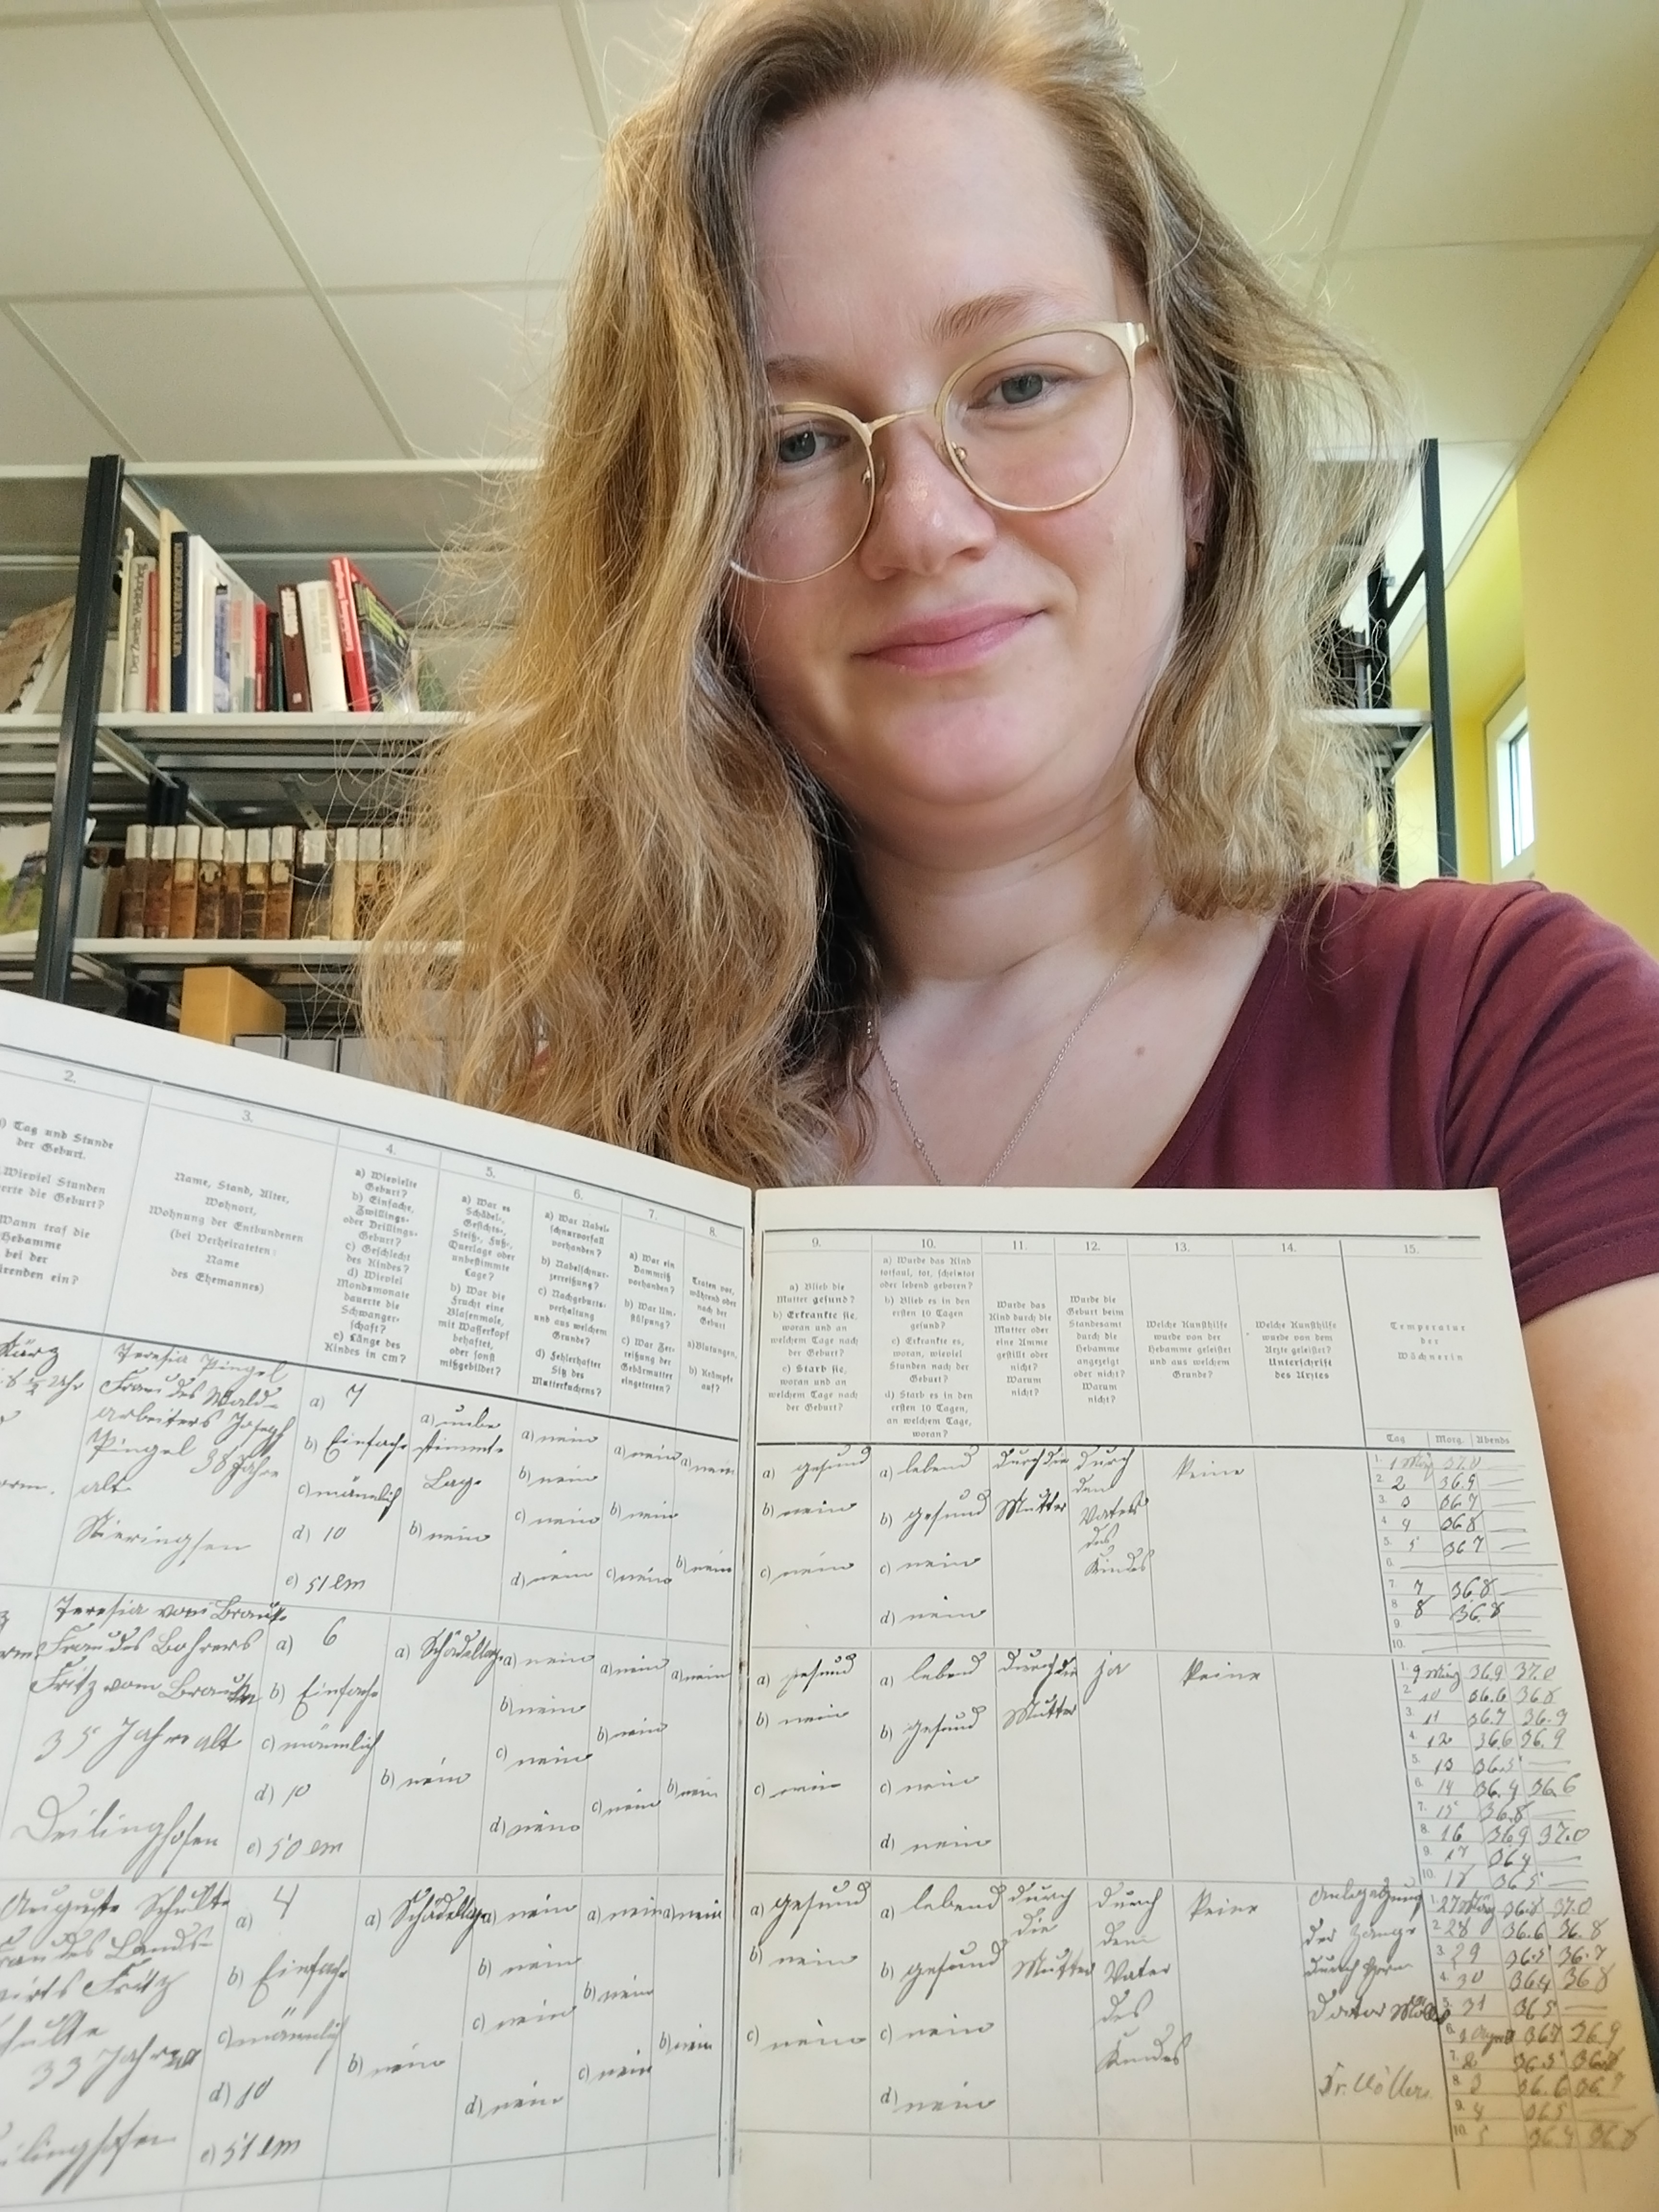 Der Zweite Weltkrieg
2.
Tag und Stunde
der Geburt.
Wieviel Stunden
erte die Geburt?
Wann traf die
Hebamme
bei der
renden ein?
3.
Name, Stand, Alter,
Wohnort,
Wohnung der Entbundenen
(bei Verheirateten:
Name
des Ehemannes)
4.
a) Wievielte
Geburt?
b) Einfache,
Zwillings-
oder Drillings-
Geburt?
c) Geschlecht
des Kindes?
d) Wieviel
Mondsmonate
dauerte die
Schwanger-
schaft?
e) Länge des
Kindes in cm?
5.
a) War es
Schädel-,
Gesichts-,
Steiß-, Fuß-,
Querlage oder
unbestimmte
Lage?
b) War die
Frucht eine
Blasenmole,
mit Wasserkopf
behaftet,
oder sonst
mißgebildet?
6.
a) War Nabel-
schnurvorfall
vorhanden?
b) Nabelschnur-
zerreißung?
c) Nachgeburts-
verhaltung
und aus welchem
Grunde?
d) Fehlerhafter
Sitz des
Mutterkuchens?
7.
a) War ein
Dammriß
vorhanden?
b) War Um-
stülpung?
c) War Zer-
reißung der
Gebärmutter
eingetreten?
8.
Traten vor,
während oder
nach der
Geburt
a) Blutungen,
b) Krämpfe
auf?
9.
a) Blieb die
Mutter gesund?
b) Erkrankte sie,
woran und an
welchem Tage nach
der Geburt?
c) Starb sie,
woran und an
welchem Tage nach
der Geburt?
10.
a) Wurde das Kind
totfaul, tot, scheintot
oder lebend geboren?
b) Blieb es in den
ersten 10 Tagen
gesund?
c) Erkrankte es,
woran, wieviel
Stunden nach der
Geburt?
d) Starb es in den
ersten 10 Tagen,
an welchem Tage,
woran?
11.
Wurde das
Kind durch die
Mutter oder
eine Amme
gestillt oder
nicht?
Warum
nicht?
12.
Wurde die
Geburt beim
Standesamt
durch die
Hebamme
angezeigt
oder nicht?
Warum
nicht?
13.
Welche Kunsthilfe
wurde von der
Hebamme geleistet
und aus welchem
Grunde?
14.
Welche Kunsthilfe
wurde von dem
Arzte geleistet?
Unterschrift
des Arztes
15.
Temperatur
der
Wöchnerin
Tag Morg. Abends
März
8 1/2 Uhr
Teresia Pingel
Frau des Wald-
arbeiters Joseph
Pingel 38 Jahre
alt
a) 7
b) Einfache
c) männlich
d) 10
e) 51 cm
a) unbe
stimmte
Lage
b) nein
a) nein
b) nein
c) nein
d) nein
a) nein
b) nein
c) nein
a) nein
b) nein
a) gesund
b) nein
c) nein
a) lebend
b) gesund
c) nein
d) nein
durch die
Mutter
durch
den
Vater
des
Kindes
keine
1. 1 März 37.0
2. 2 36.9
3. 3 36.7
4. 4 36.8
5. 5 36.7
6.
7. 7 36.8
8. 8 36.8
9.
10.
Teresia vom Brauk
Frau des Bohrers
Fritz vom Brauke
35 Jahre alt
Deilinghofen
a) 6
b) Einfache
c) männlich
d) 10
e) 50 cm
a) Schädellage
b) nein
a) nein
b) nein
c) nein
d) nein
a) nein
b) nein
c) nein
a) nein
b) nein
a) gesund
b) nein
c) nein
a) lebend
b) gesund
c) nein
d) nein
durch die
Mutter
ja
keine
1. 9 März 36.9 37.0
2. 10 36.6 36.8
3. 11 36.7 36.9
4. 12 36.6 36.9
5. 13 36.5
6. 14 36.4 36.6
7. 15 36.8
8. 16 36.9 37.0
9. 17 36.4
10. 18 36.5
Auguste Schulte
Frau des Land-
wirts Fritz
Schulte
33 Jahre
ilinghofen
a) 4
b) Einfache
c) männlich
d) 10
e) 51 cm
a) Schädellage
b) nein
a) nein
b) nein
c) nein
d) nein
a) nein
b) nein
c) nein
a) nein
b) nein
a) gesund
b) nein
c) nein
a) lebend
b) gesund
c) nein
d) nein
durch
die
Mutter
durch
dem
Vater
des
Kindes
keine
Anlegung
der Zange
durch Herrn
1. 27 36.8 37.0
2. 28 36.6 36.8
3. 29 36.5 36.7
4. 30 36.4 36.8
5. 31 36.5
6. 36.7 36.9
7. 2 36.5
8. 3 36.6 36.7
9. 4 36.5
10. 5 36.4 36.8